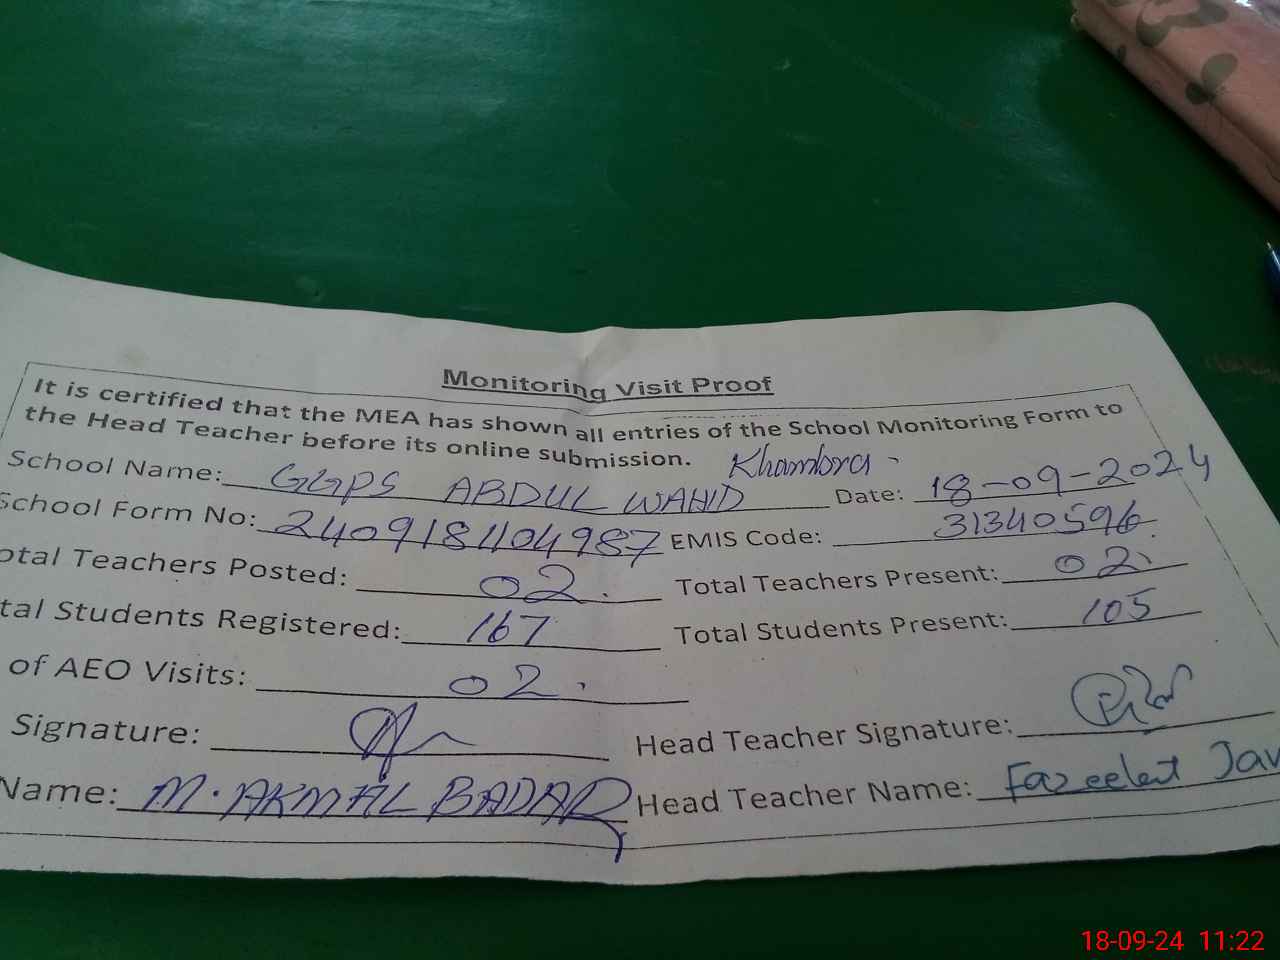 Monitoring Visit Proof
It is certified that the MEA has shown all entries of the School Monitoring Form to
the Head Teacher before its online submission.
School Name: GGPS ABDUL WAHID Khambra. Date: 18-09-2024
School Form No: 2409181104987 EMIS Code: 31340596
otal Teachers Posted: 02. Total Teachers Present: 02.
tal Students Registered: 167 Total Students Present: 105
of AEO Visits: 02.
Signature: Head Teacher Signature:
Name: M. AKMAL BADAR Head Teacher Name: Fazeelat Jav
18-09-24 11:22